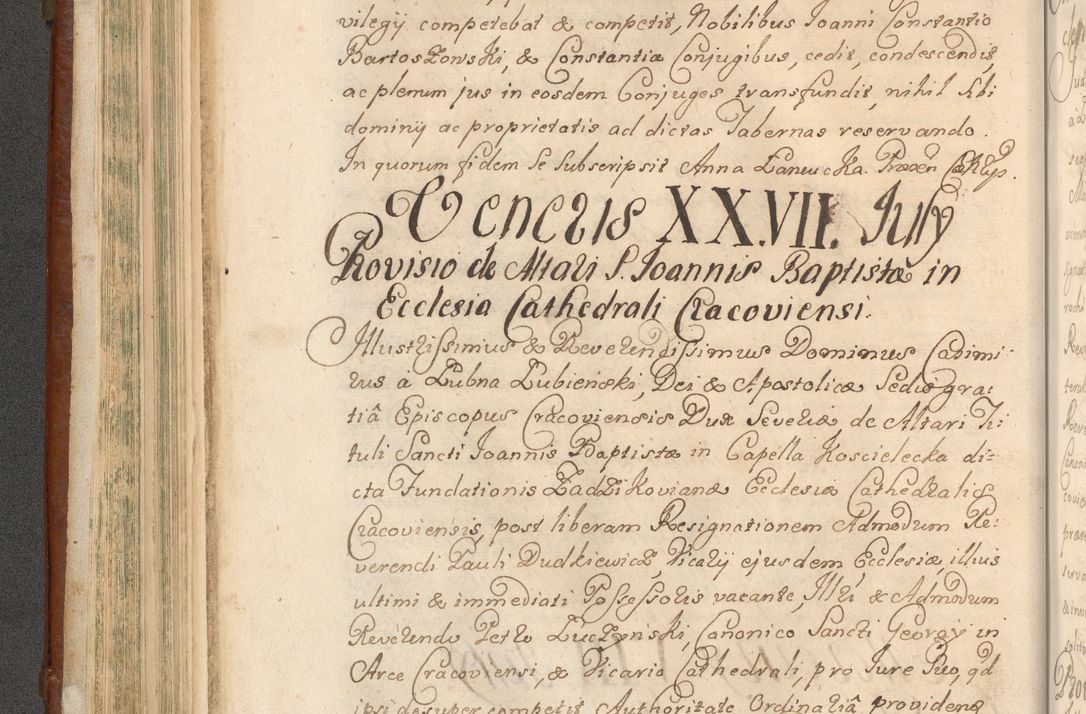 vilegij competebat & competit, Nobilibus Joanni Constantio
Bartoszowski, & Constantiæ Conjugibus, cedit, condescendit,
ac plenum jus in eosdem Conjuges transfundit, nihil sibi
dominij ac proprietatis ad dictas Tabernas reservando.
In quorum fidem se subscripsit Anna Łaneucka.
Veneris XXVII. July
Provisio de Altari S. Joannis Baptistæ in
Ecclesia Cathedrali Cracoviensi.
Illustrissimus & Reverendissimus Dominus Casimi-
rus à Łubna Łubieński, Dei & Apostolicæ Sedis gra:
tiâ Episcopus Cracoviensis Dux Severiæ, de Altari Ti
tuli Sancti Joannis Baptistæ in Capella Koscielecka di=
cta Fundationis Zadzikovianæ Ecclesiæ Cathedralis
Cracoviensis, post liberam Resignationem Admodum Re:
verendi Pauli Dudkiewicz, Vicarij ejusdem Ecclesiæ, illius
ultimi & immediati Possessoris vacante, Illri & Admodum
Reverendo Petro Łuczyński, Canonico Sancti Georgij in
Arce Cracoviensi, & Vicario Cathedrali, pro Jure suo, qd
ipsi desuper competit Authoritate Ordinariâ providens